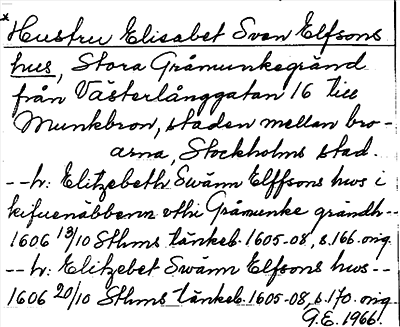 x
Hustru Elisabet Sven Elfsons
hus, Stora Gråmunkegränd
från Västerlånggatan 16 till
Munkbron, staden mellan bro-
arna, Stockholms stad.
--h: Elitzebeth Swänn Elffsons hws i
kifuenäbbenn vthi Gråmunke grändh--
1606 13/10 Sthms tänkeb. 1605-08, s.166. orig.
--h: Elitzebet Swänn Elfsons hws--
1606 20/10 Sthms tänkeb. 1605-08, s.170. orig.
G.E. 1966.